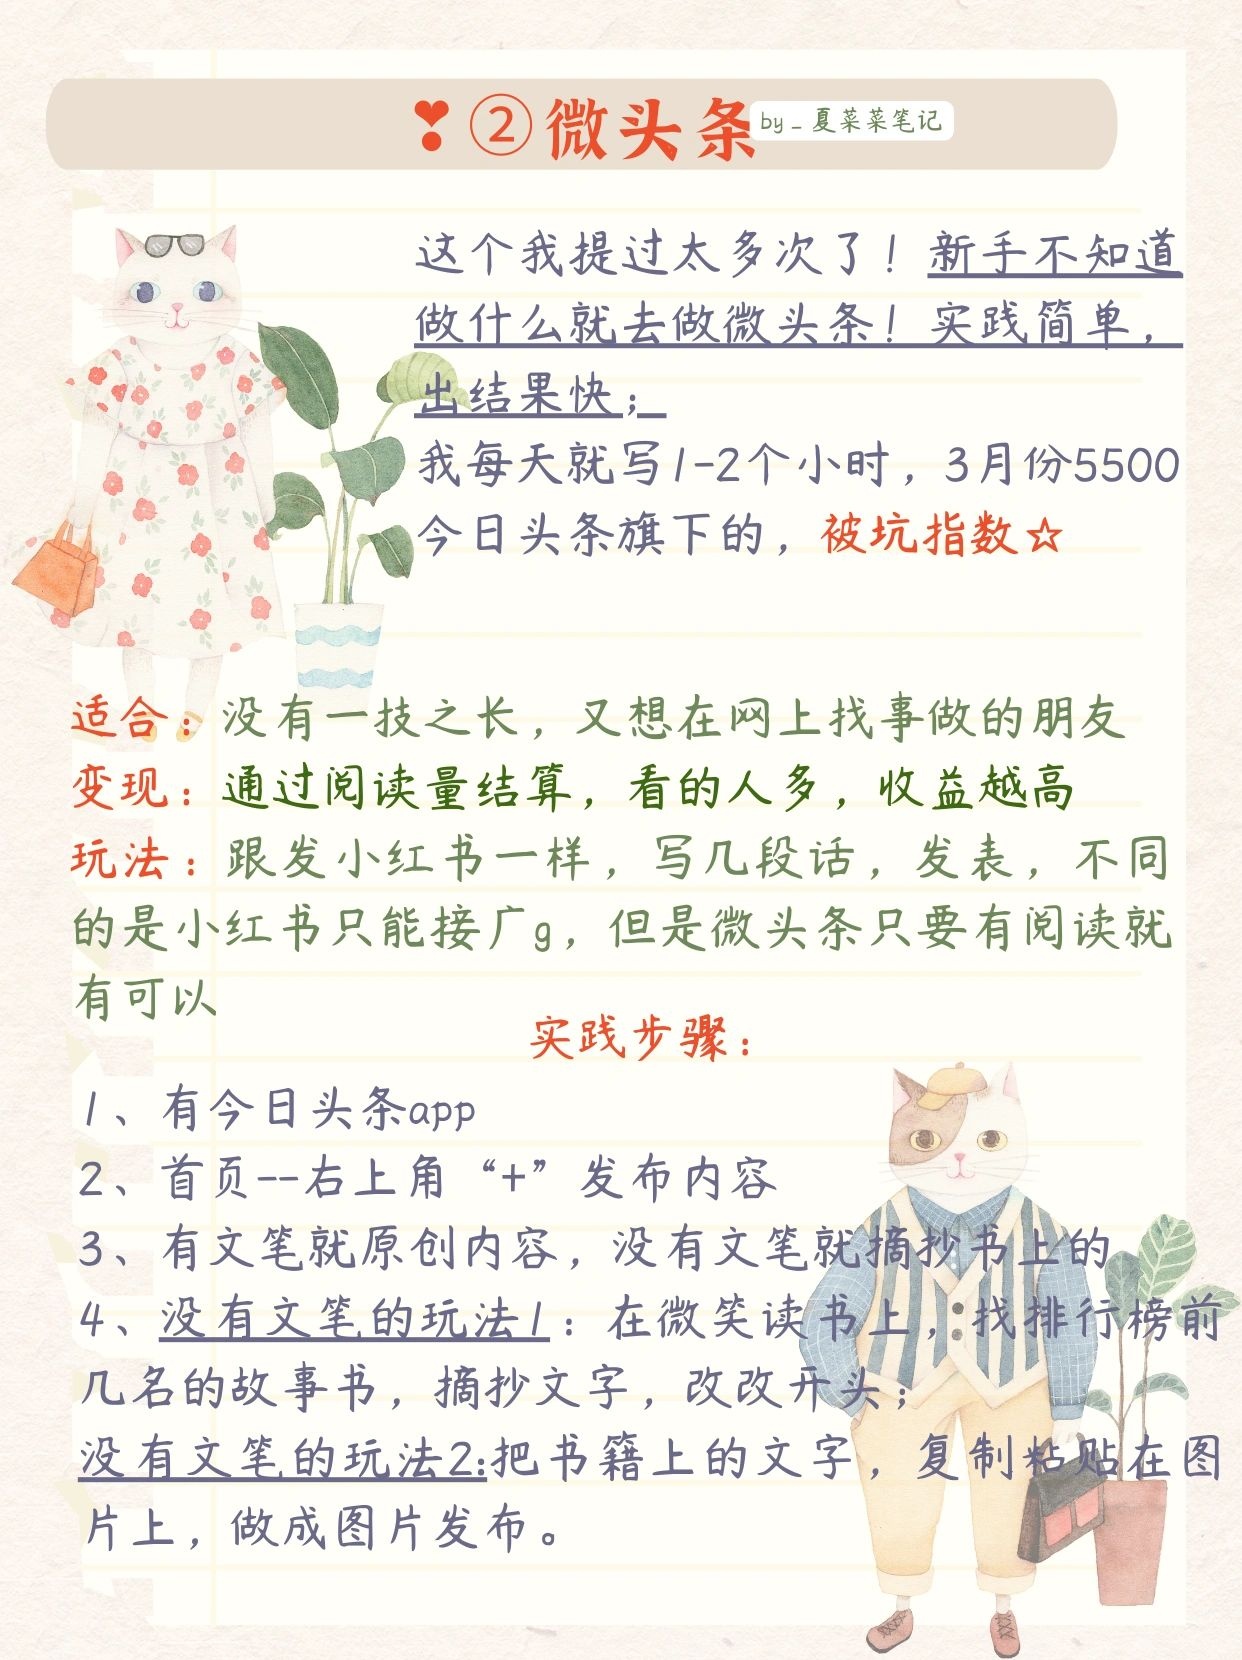 ❣②微头条
by _ 夏菜菜笔记
这个我提过太多次了！新手不知道
做什么就去做微头条！实践简单，
出结果快；
我每天就写1-2个小时，3月份5500
今日头条旗下的，被坑指数☆
适合：没有一技之长，又想在网上找事做的朋友
变现：通过阅读量结算，看的人多，收益越高
玩法：跟发小红书一样，写几段话，发表，不同
的是小红书只能接广g，但是微头条只要有阅读就
有可以
实践步骤：
1、有今日头条app
2、首页--右上角“+”发布内容
3、有文笔就原创内容，没有文笔就摘抄书上的
4、没有文笔的玩法1：在微笑读书上，找排行榜前
几名的故事书，摘抄文字，改改开头；
没有文笔的玩法2:把书籍上的文字，复制粘贴在图
片上，做成图片发布。